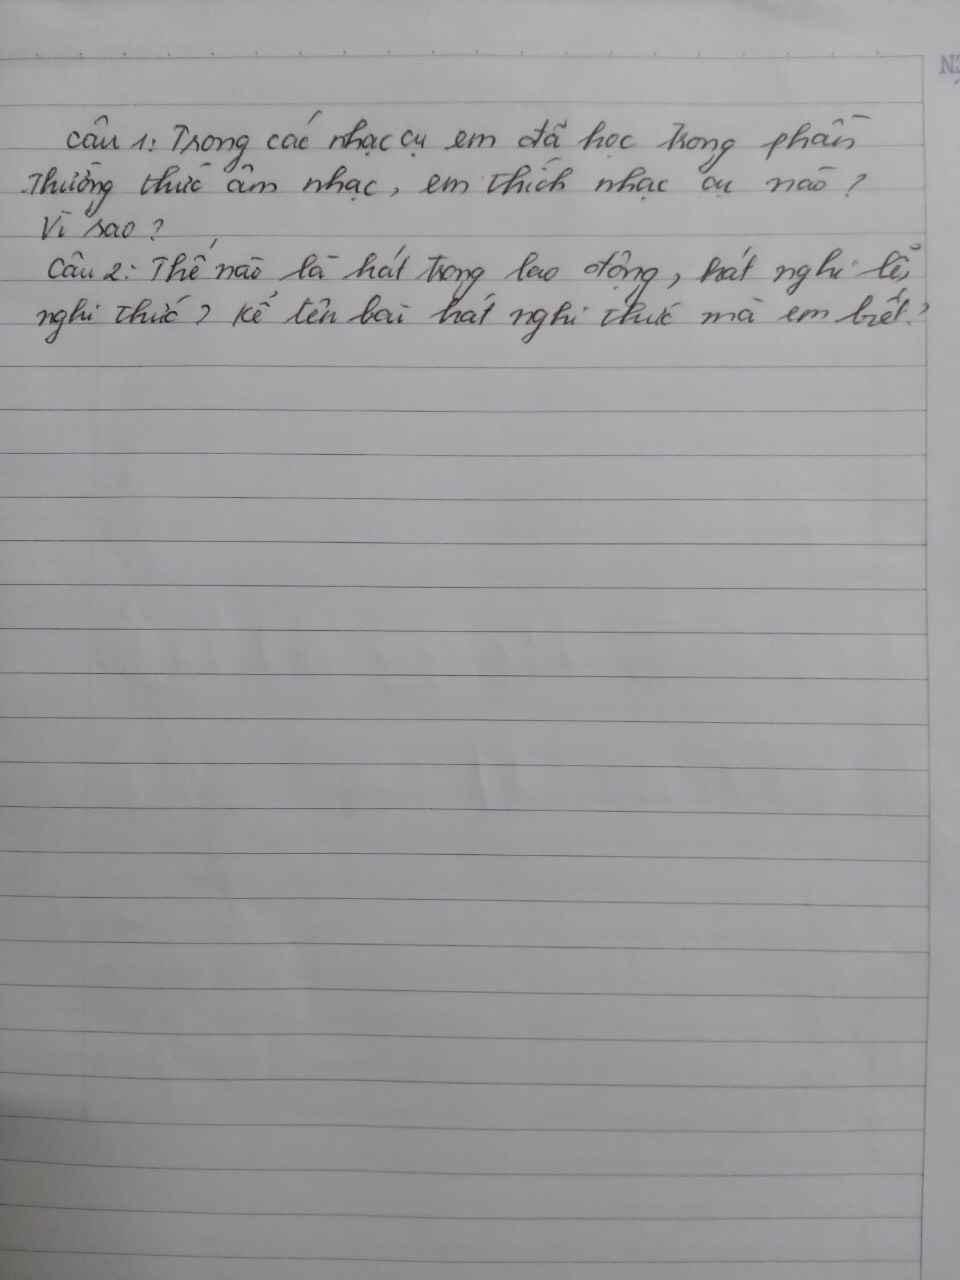 Câu 1: Trong các nhạc cụ em đã học trong phần
Thưởng thức âm nhạc, em thích nhạc cụ nào?
Vì sao?
Câu 2: Thế nào là hát trong lao động, hát nghi lễ,
nghi thức? Kể tên bài hát nghi thức mà em biết?